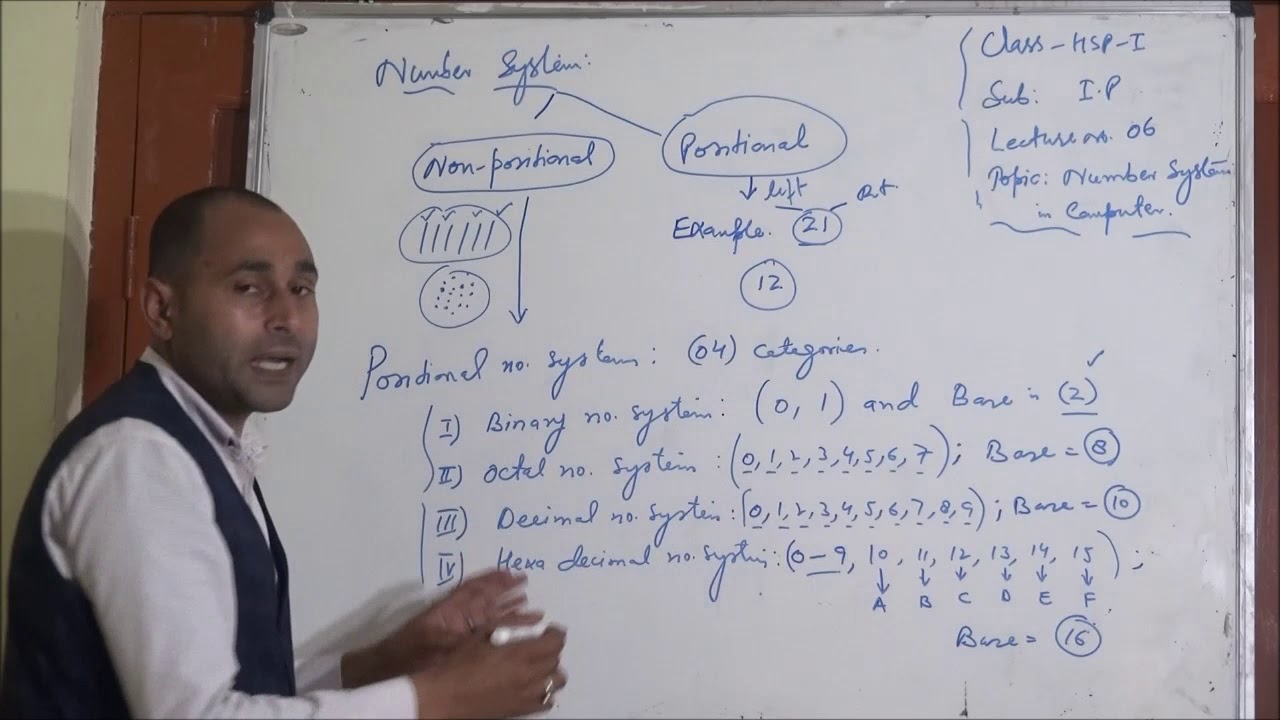 Number System:
Non-positional
Positional
left
Example. 21
12
Class - HSP-I
Sub: I.P
Lecture no. 06
Topic: Number System
in Computer.
Positional no. system: (04) categories.
I) Binary no. system: (0, 1) and Base is (2)
II) Octal no. system: (0, 1, 2, 3, 4, 5, 6, 7); Base = 8
III) Decimal no. system: (0, 1, 2, 3, 4, 5, 6, 7, 8, 9); Base = 10
IV) Hexa decimal no. system: (0 - 9, 10, 11, 12, 13, 14, 15);
A B C D E F
Base = 16